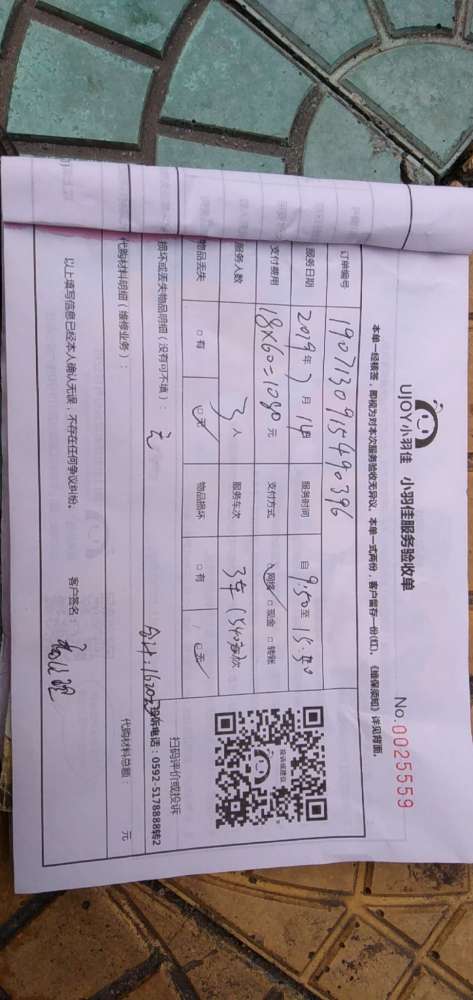 UJOY小羽佳 小羽佳服务验收单
No.0025559
本单一经核签，即视为对本次服务验收无异议。本单一式两份，客户留存一份(红)。《维保须知》详见背面。
订单编号 1907130915490396
服务日期 2019年7月14日 服务时间 自9:50至15:50
支付费用 18×60=1080元 支付方式 网络 □现金 □转账
服务人数 3人 服务车次 3车(540元/次
物品丢失 □有 无 物品损坏 □有 无
损坏或丢失物品明细（没有可不填）： 无
合计：1620元
扫码评价或投诉
投诉电话：0592-5178888转2
代购材料明细（维修业务）：
代购材料总额： 元
以上填写信息已经本人确认无误，不存在任何争议纠纷。
客户签名：